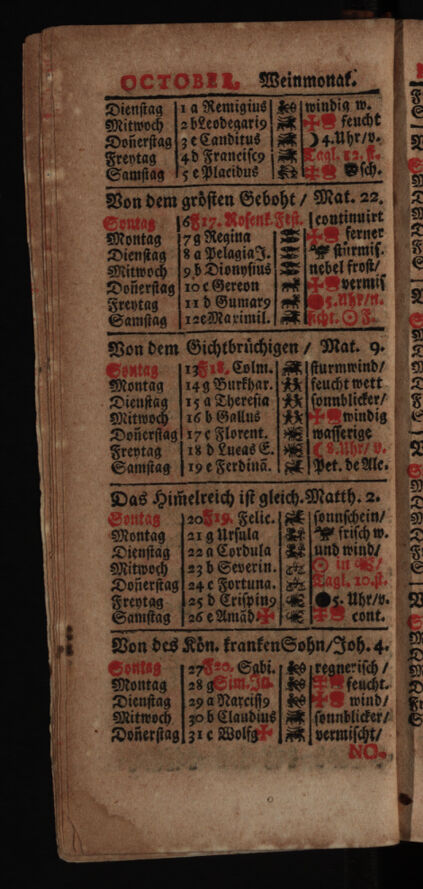 OCTOBER. Weinmonat.
Dienstag 1 a Remigius windig w.
Mitwoch 2 b Leodegari9 feucht
Doñerstag 3 c Canditus ☽ 4. Uhr/v.
Freytag 4 d Francisc9 Tagl. 12. st.
Samstag 5 e Placidus sch.
Von dem grösten Geboht / Mat. 22.
Sontag 6 F17. Rosenk. Fest. continuirt
Montag 7 g Regina ferner
Dienstag 8 a Pelagia J. stürmis.
Mitwoch 9 b Dionysius nebel frost/
Doñerstag 10 c Gereon vermis
Freytag 11 d Gumar9 5. Uhr/n.
Samstag 12 e Maximil. ☉ F.
Von dem Gichtbrüchigen / Mat. 9.
Sontag 13 F18. Colm. sturmwind/
Montag 14 g Burkhar. feucht wett
Dienstag 15 a Theresia sonnblicker/
Mitwoch 16 b Gallus windig
Doñerstag 17 c Florent. wasserige
Freytag 18 d Lucas E. ☾ 8. Uhr/ v.
Samstag 19 e Ferdinã. Pet. de Alc.
Das Himelreich ist gleich. Matth. 2.
Sontag 20 F19. Felic. sonnschein/
Montag 21 g Ursula frisch w.
Dienstag 22 a Cordula und wind/
Mitwoch 23 b Severin. ☉ in
Doñerstag 24 c Fortuna. Tagl. 10. st.
Freytag 25 d Crispin9 5. Uhr/v.
Samstag 26 e Amãd9 cont.
Von des Kön. kranken Sohn/Joh. 4.
Sontag 27 F20. Sabi. regnerisch /
Montag 28 g Sim. Ju. feucht.
Dienstag 29 a Narciss9 wind/
Mitwoch 30 b Claudius sonnblicker/
Doñerstag 31 c Wolfg vermischt/
NO.